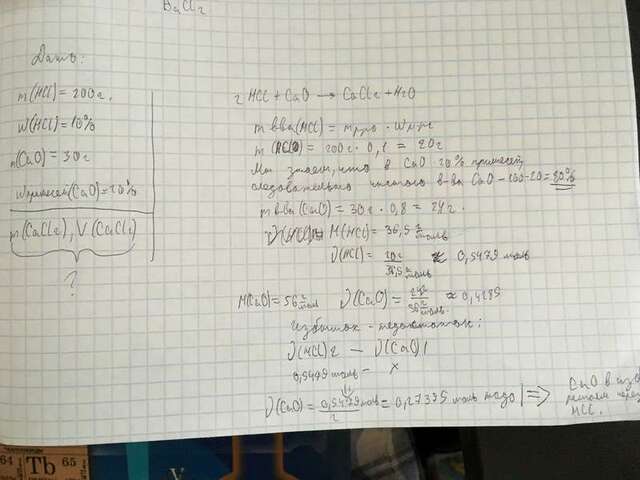 BaCl2
Дано:
m(HCl) = 200г.
W(HCl) = 10%
m(CaO) = 30г
Wпримесей(CaO) = 20%
m(CaCl2), V(CaCl2)
?
2 HCl + CaO → CaCl2 + H2O
m в-ва(HCl) = mр-ра · Wв-ва
m (HCl) = 200г · 0,1 = 20г
Мы знаем, что в CaO 20% примесей,
следовательно чистого в-ва CaO - 100-20 = 80%
m в-ва (CaO) = 30г · 0,8 = 24г.
M(HCl) = 36,5 г/моль
ν(HCl) = 20г / 36,5 г/моль ≈ 0,5479 моль
M(CaO) = 56 г/моль ν(CaO) = 24г / 56 г/моль ≈ 0,4285
Избыток - недостаток:
ν(HCl) 2 — ν(CaO) 1
0,5479 моль = x
ν(CaO) = 0,5479 моль / 2 = 0,27395 моль надо ⇒ CaO в изб
решаем через
HCl.
64 Tb 65